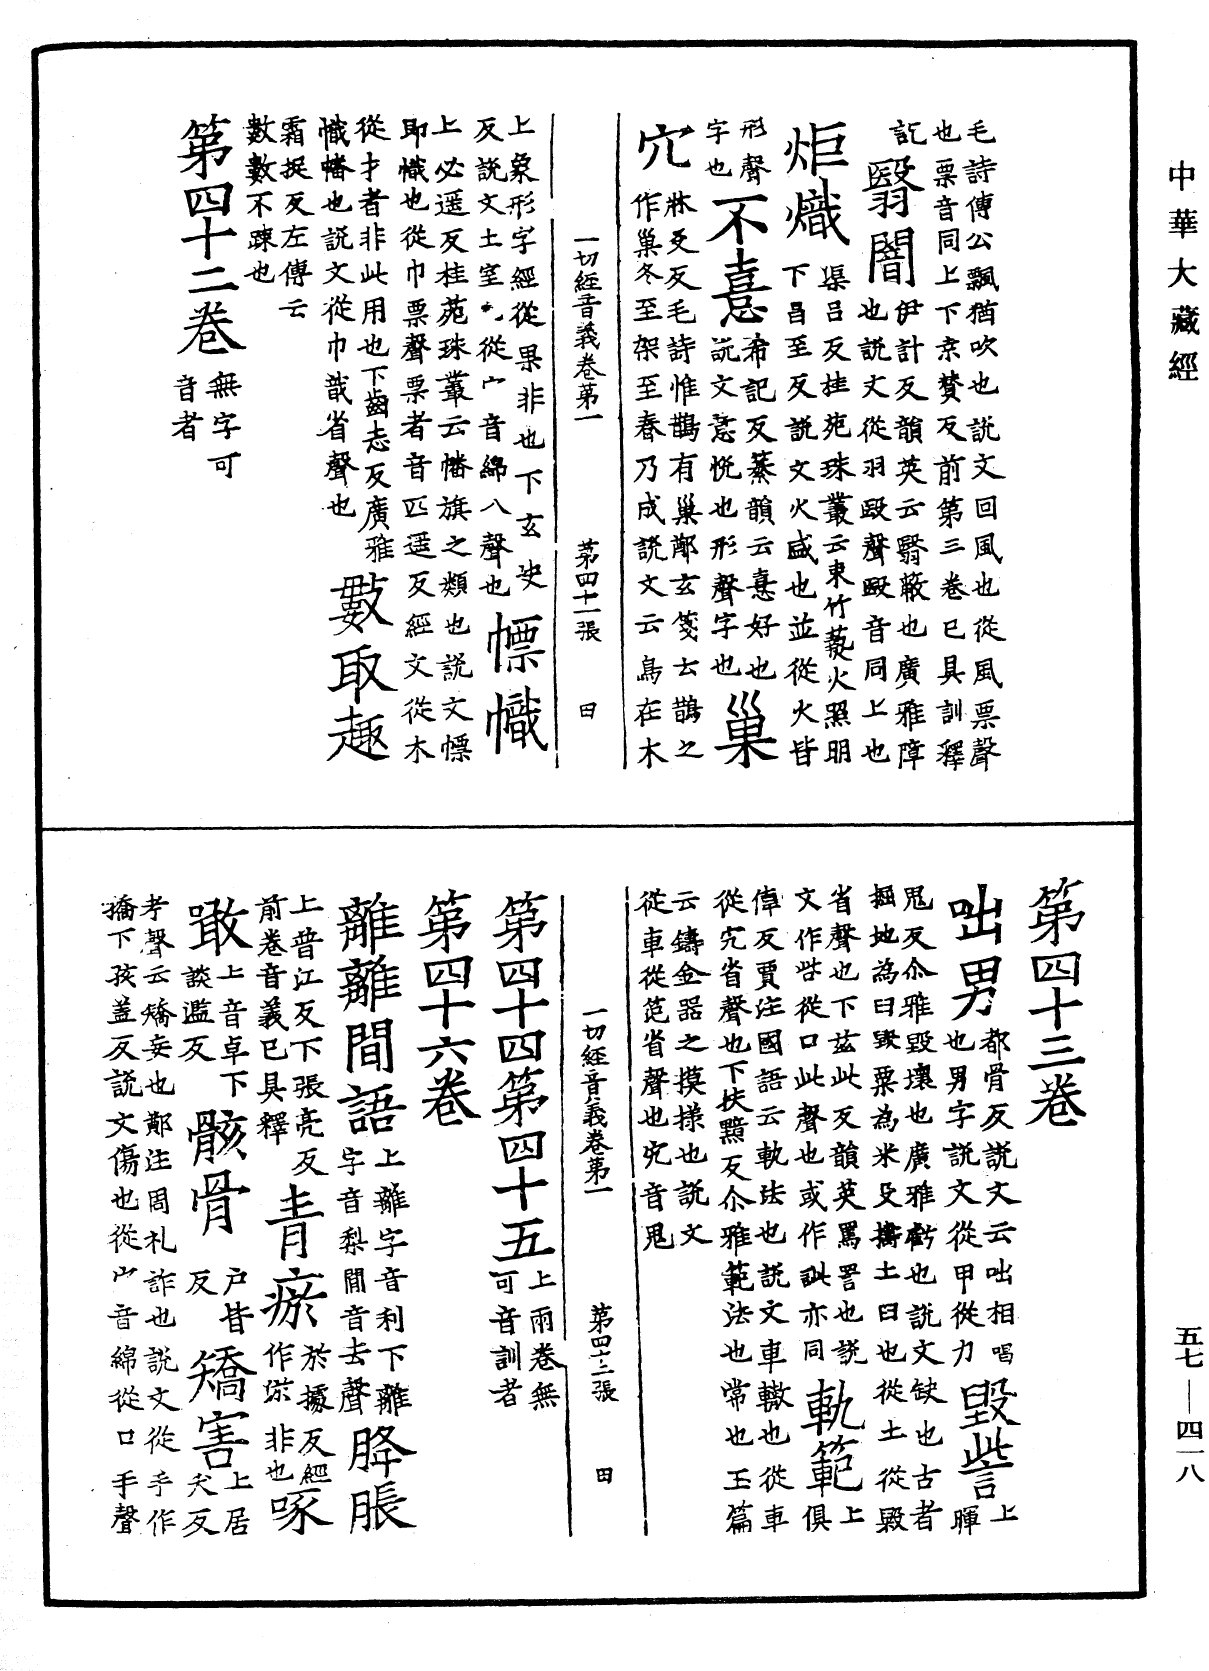 中華大藏經
毛詩傳公飄猶吹也說文回風也從風票聲
也票音同上下京賛反前第三卷已具訓釋
訖翳闇伊計反韻英云翳蔽也廣雅障
也說文從羽殹聲殹音同上也
炬熾渠呂反桂苑珠叢云束竹蓌火照明
下昌至反說文火盛也並從火皆
形聲字也不憙希記反蒃韻云憙好也
說文憙悅也形聲字也巢
穴牀交反毛詩惟鵲有巢鄭玄箋云鵲之
作巢冬至架至春乃成說文云鳥在木
一切經音義卷第一 第四十一張 田
上象形字經從果非也下玄
反說文土室也從宀音綿八聲也幖幟
上必遥反桂苑珠叢云幡旗之類也說文幖
即幟也從巾票聲票者音匹遥反經文從木
從扌者非此用也下齒志反廣雅
幟幡也說文從巾戠省聲也數取趣
霜捉反左傳云
數數不踈也
第四十二卷無字可音者
第四十三卷
咄男都骨反說文云咄相唱
也男字說文從甲從力毀訾上暉
鬼反尒雅毀壞也廣雅虧也說文缺也古者
掘地為臼毀粟為米殳擣土臼也從土從毇
省聲也下茲此反韻英罵詈也說
文作呰從口此聲也或作訿亦同軌範上俱
偉反賈注國語云軌法也說文車轍也從車
從宄省聲也下扶黯反尒雅範法也常也玉篇
云鑄金器之摸様也說文
從車從笵省聲也宄音鬼
一切經音義卷第一 第四十二張 田
第四十四第四十五上兩卷無可音訓者
第四十六卷
離離間語上離字音利下離
字音梨間音去聲胮脹
上普江反下張亮反
前卷音義已具釋青瘀於據反經
作淤非也啄
噉上音卓下
談濫反骸骨戶皆反矯害上居夭反
考聲云矯妄也鄭注周礼詐也說文從手作
撟下孩盖反說文傷也從宀音綿從口手聲
五七—四一八